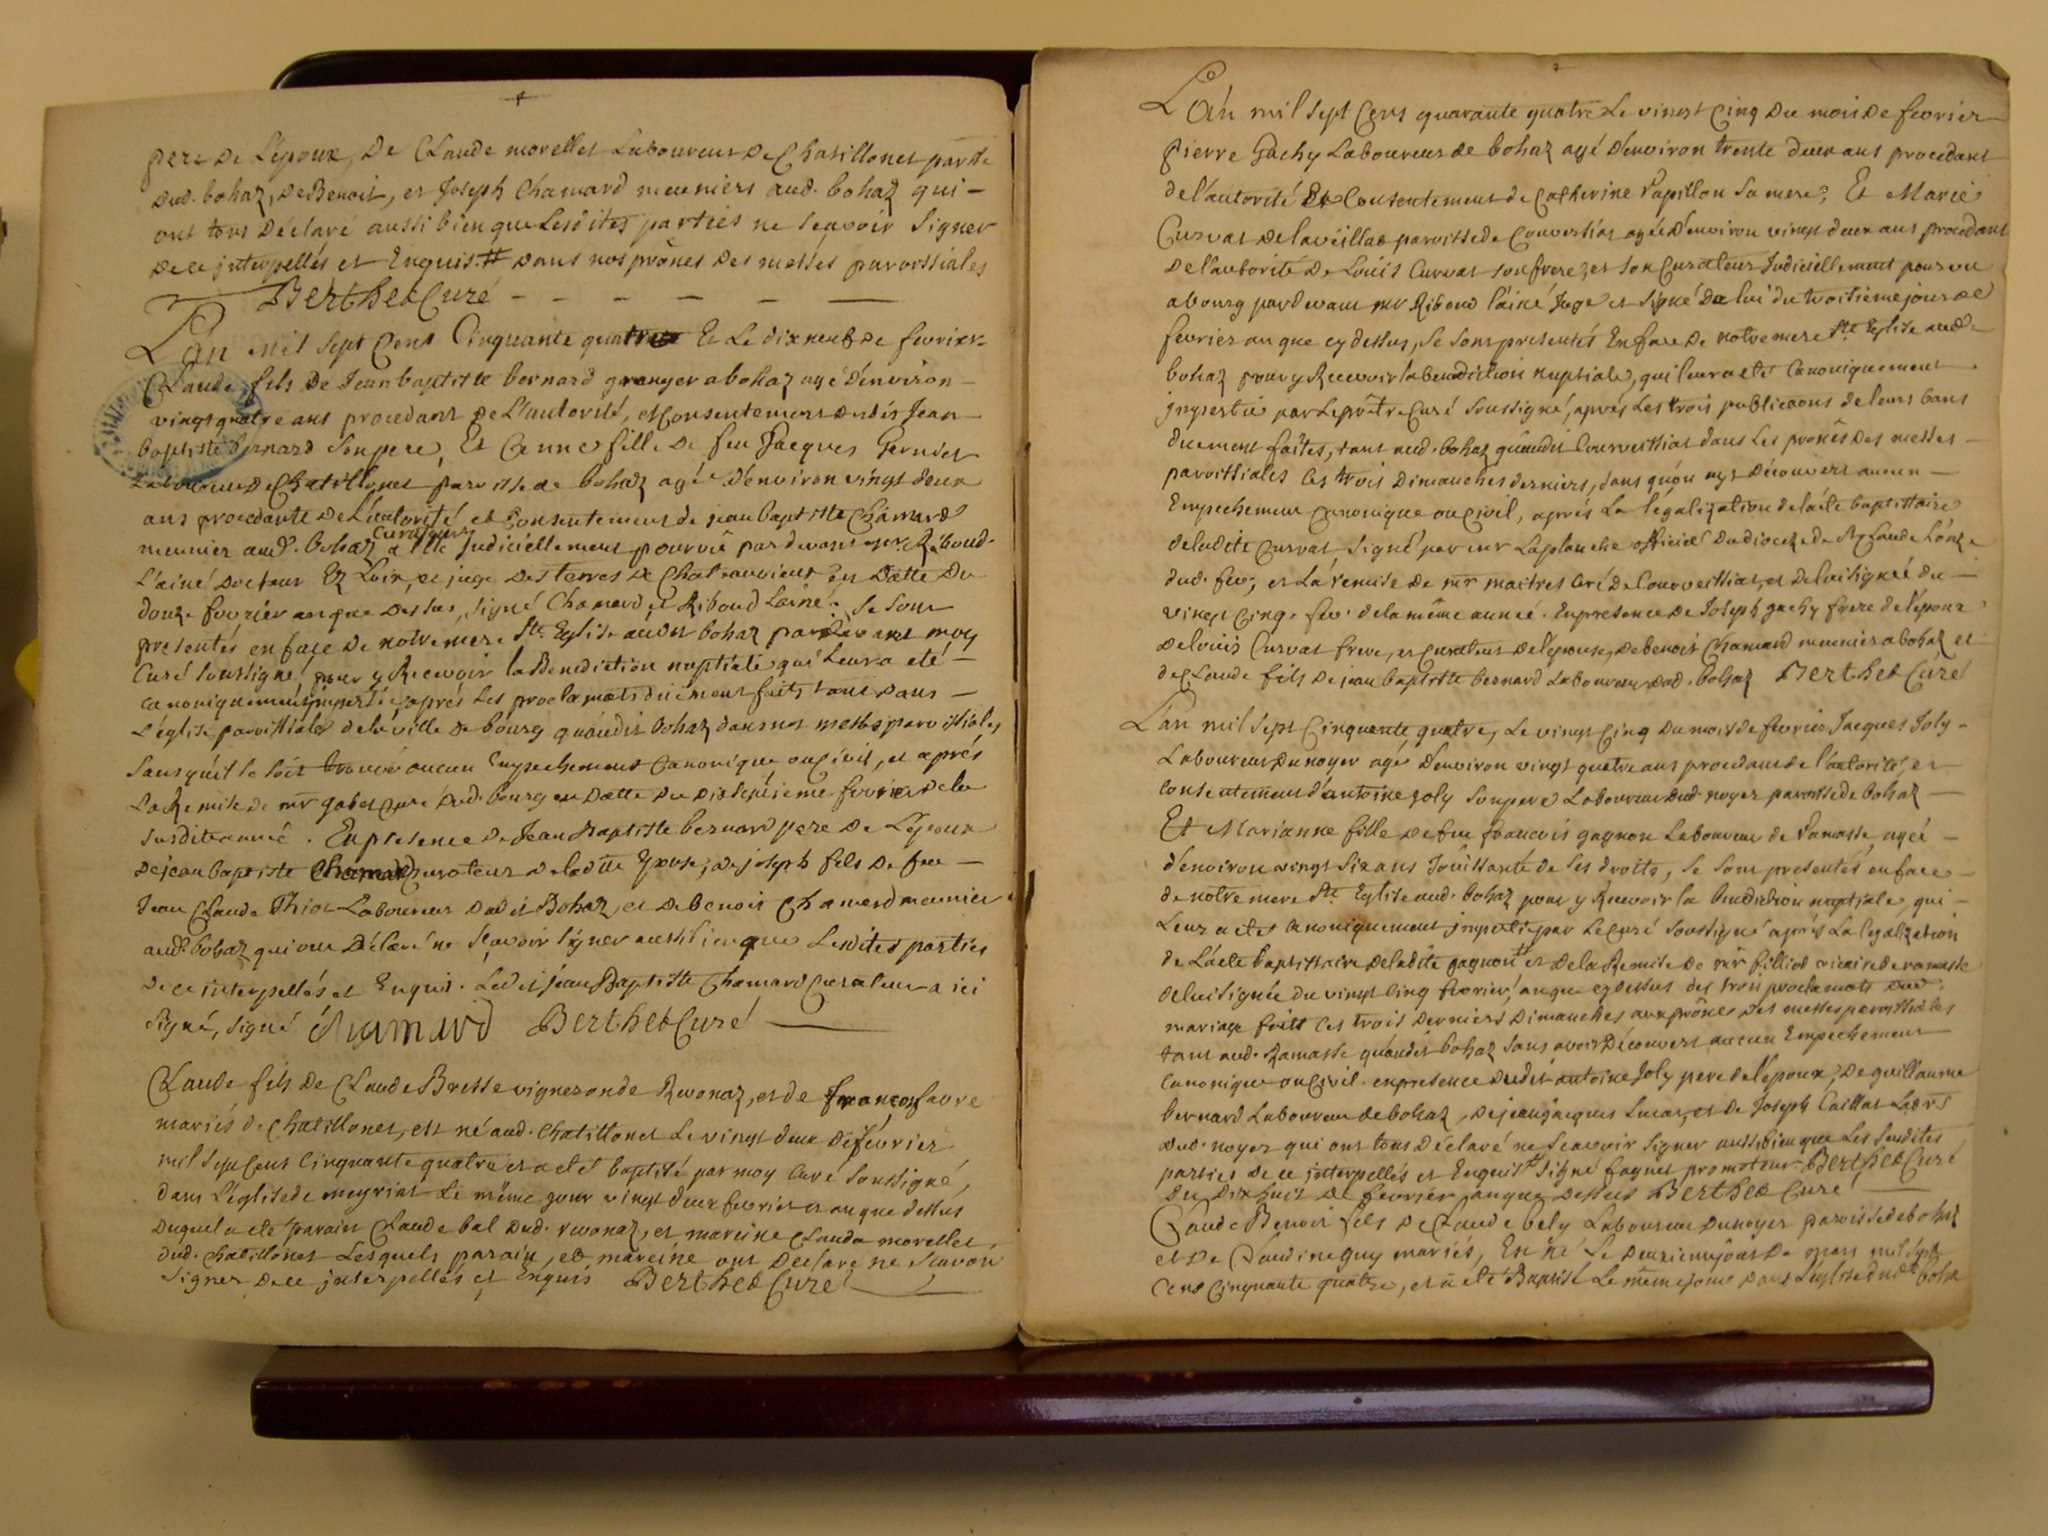 pere de L'epoux, De Claude morellet Laboureur de Chatillonet parsse
dud. bohaz, de Benoit, et Joseph Chamard meuniers aud. bohaz qui -
ont tous Déclaré aussi bien que Lesdites parties ne scavoir Signer
de ce jnterpellés et Enquis. # dans nos prônes des messes paroissiales
Berthet Curé - - - - -
L'an mil Sept Cent Cinquante quatre Et Le dixneuf de fevrier
Claude fils De Jean baptiste bernard granger a bohaz agé d'environ -
vingt quatre ans procedant de L'autorité, et Consentement dudit Jean
baptiste Bernard Son pere, Et fille De feu Jacques
Laboureur de Chatillonet paroisse de bohaz agée d'environ vingt deux
ans procedante de L'autorité et Consentement de jean baptiste Chamard
Curateur
meunier aud. bohaz a Elle judiciellement pourvû pardevant mr Riboud
L'ainé Docteur Ez Loix, et juge des terres de en Datte du
douze fevrier an que dessus, signé Chamard et Riboud Lainé. Se Sont
presentés en face de notre mere Ste Eglise audit bohaz pardevant moy
Curé Soussigné pour y Recevoir la Benediction nuptiale qui Leur a eté -
canoniquement impartie, aprés Les proclamats duement faits tant dans -
L'église paroissiale de la ville de bourg qu'audit bohaz dans nos messes paroissiales
Sans qu'il se soit trouvé aucun Empechement Canonique ou Civil, et aprés
La Remise de mr Curé dud. bourg en Datte du dixseptieme fevrier de la
susdite année. En presence de Jean Baptiste bernard pere De L'epoux
de jean baptiste Chamard Curateur de ladite Epouse, de joseph fils De feu -
Jean Claude Thior Laboureur dudit Bohaz, et de benoit Chamard meunier
aud. bohaz qui ont Déclaré ne scavoir signer aussi bien que Lesdites parties
de ce interpellés et Enquis. Ledit jean Baptiste Chamard Curateur a ici
signé, signé Chamard Berthet Curé
Claude fils De Claude Bresse vigneron de Revonaz, et de favre
mariés de Chatillonet, est né aud. Chatillonet Le vingt deux de fevrier
mil sept Cent Cinquante quatre et a eté baptisé par moy Curé Soussigné,
dans L'eglise de meyriat Le même jour vingt deux fevrier et an que dessus
Duquel a eté parain Claude bal dud. revonaz, et mareine Clauda morellet
dud. Chatillonet Lesquels parain, et mareine ont Declaré ne scavoir
signer de ce jnterpellés et Enquis Berthet Curé
L'an mil Sept Cens quarante quatre Le vingt Cinq du mois de fevrier
Pierre Gachy Laboureur de bohaz agé d'environ trente deux ans procedant
de l'autorité Et Consentement de Catherine Papillon Sa mere, Et Marie
Curvat de paroisse de Courvestiat agée d'environ vingt deux ans procedant
De l'autorité De Louis Curvat son frere, et son Curateur Judiciellement pourvu
a bourg pardevant mr Riboud l'ainé Juge et signé de lui du troisieme jour de
fevrier an que cy dessus, Se sont presentés En face de notre mere Ste Eglise aud.
bohaz pour y Recevoir la benediction nuptiale, qui leur a eté Canoniquement
jmpartie par Le prêtre Curé Soussigné, aprés Les trois publicaons de leurs bans
duement faites, tant aud. bohaz qu'audit Courvessiat dans Les prônes des messes -
paroissiales Les trois Dimanches derniers, sans qu'on ayt Découvert aucun -
Empechement Canonique ou Civil, aprés La légalization de l'acte baptistaire
de ladite Curvat signé par mr Laplanche official du diocèze de St Claude L'onze
dud. fev; et La remise de mr maitret Curé de Courvessiat, et de lui signée du -
vingt cinq. fev. de la même année. En presence de Joseph gachy frere de l'epoux
de Louis Curvat frere, et Curateur de l'epouse, de benoit Chamard meunier a bohaz et
de Claude fils de jean baptiste bernard Laboureur dud. bohaz Berthet Curé
L'an mil sept Cinquante quatre, Le vingt Cinq du mois de fevrier Jacques Joly -
Laboureur du noyer agé d'environ vingt quatre ans procedant de l'autorité, et
Consentement d'antoine Joly Son pere Laboureur dud. noyer paroisse de bohaz -
Et Marianne fille de feu francois gagnon Laboureur de Ramasse agée -
d'environ vingt six ans Jouissante de ses droits, Se Sont presentés en face -
de notre mere Ste Eglise aud. bohaz pour y Recevoir la Benediction nuptiale, qui -
Leur a eté Canoniquement jmpartie par Le Curé Soussigné aprés La legalization
de L'acte baptistaire de ladite gagnon # et de la Remise de mr filliod vicaire de ramasse
de lui signée du vingt cinq fevrier, an que cy dessus des trois proclamats dud.
mariage faits Les trois Derniers Dimanches aux prônes des messes paroissiales
tant aud. Ramasse qu'audit bohaz Sans avoir Découvert aucun Empechement
Canonique ou Civil. en presence dudit antoine Joly pere de l'epoux, De guillaume
bernard Laboureur de bohaz, de jean jacques et de Joseph Caillat Labrs
dud. noyer qui ont tous Déclaré ne scavoir signer aussi bien que Les susdites
parties de ce jnterpellés et Enquis # signé fagnet promoteur Berthet Curé
du dixhuit de fevrier, an que dessus Berthet Curé
Claude Benoit fils de Claude bely Laboureur du noyer paroisse de bohaz
et de Claudine guy mariés, Est né Le deuxieme jour de mars mil sept
Cent Cinquante quatre, et a eté Baptisé Le même jour dans l'eglise dudt bohaz